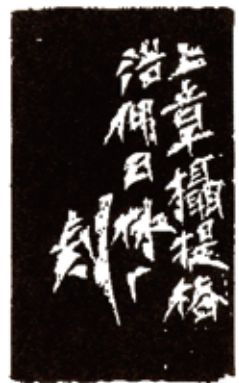 上章攝提格
浴佛日
刻